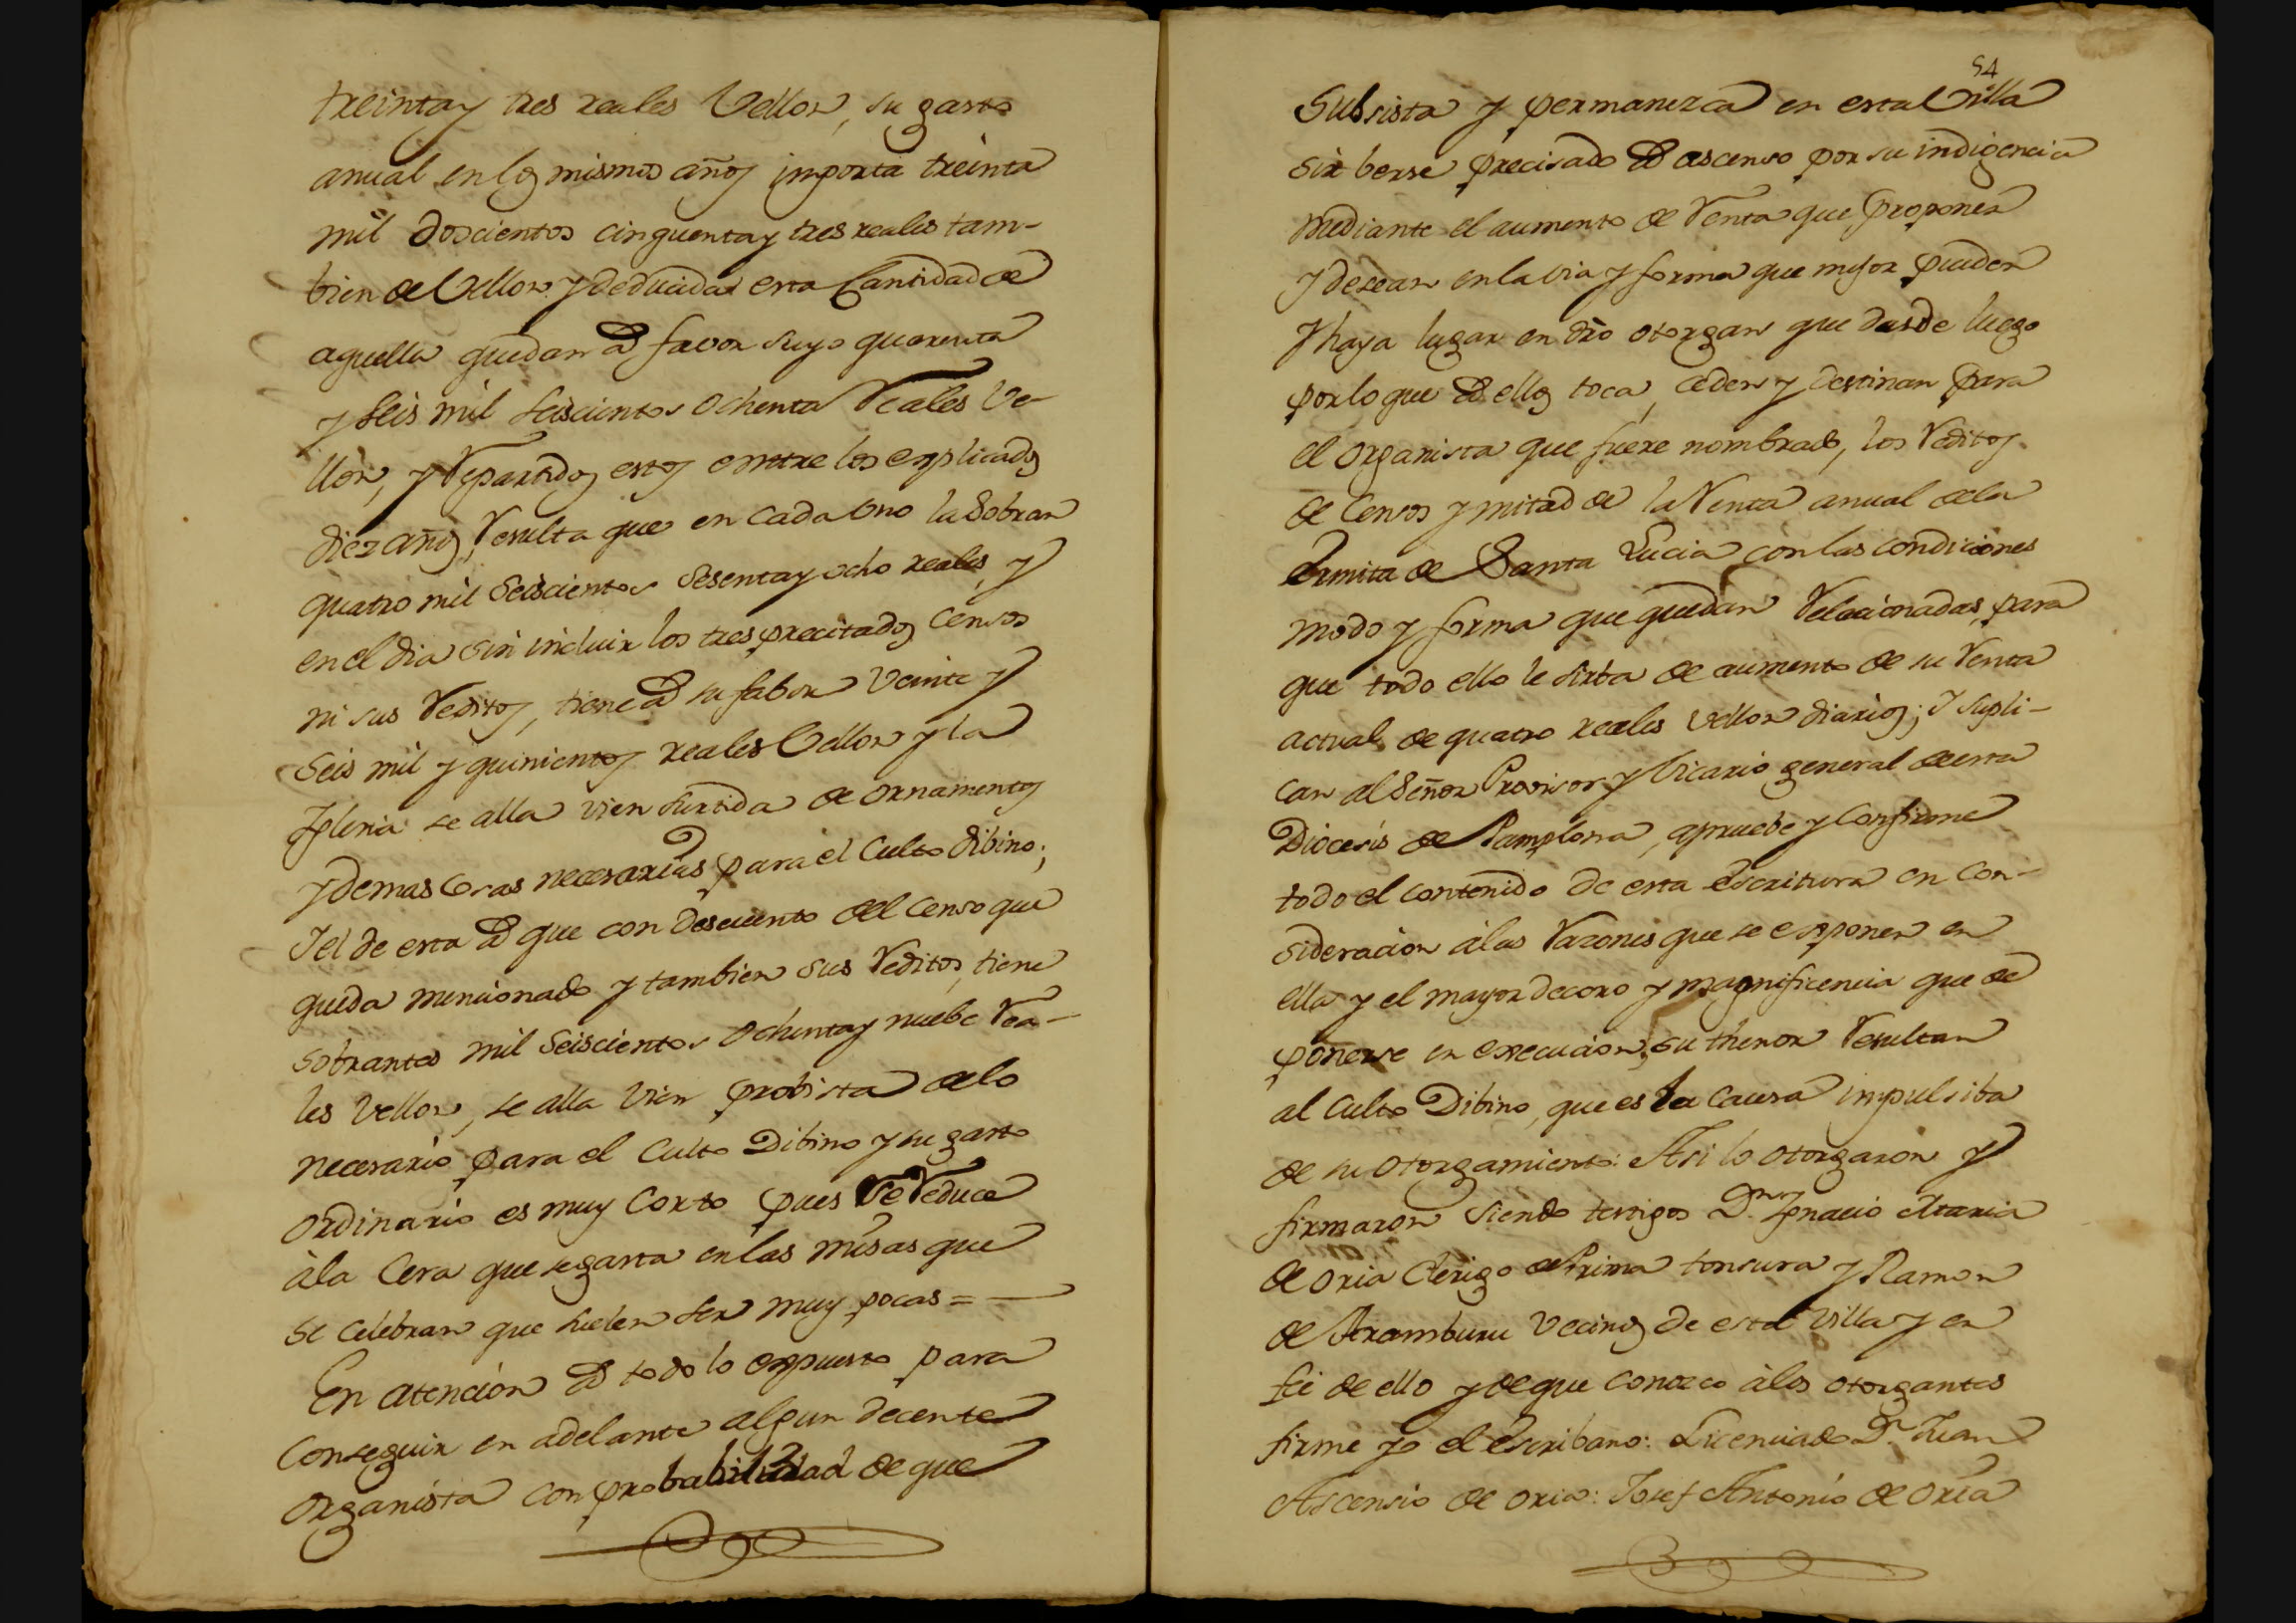 treinta y tres reales Vellon, su gasto
anual en los mismos años importa treinta
mil doscientos cinquenta y tres reales tam-
bien de Vellon y deducida esta Cantidad de
aquella quedan à favor suyo quarenta
y seis mil seiscientos ochenta Reales Ve-
llon, y Repartidos estos entre los explicados
diez años, Resulta que en cada Uno la Sobran
quatro mil Seiscientos Sesenta y ocho reales, y
en el dia sin incluir los tres precitados Censos
ni sus Reditos, tiene à su fabor Veinte y
Seis mil y quinientos reales Vellon y la
Iglesia se alla vien surtida de ornamentos
y demas Cosas necesarias para el Culto dibino;
I el de esta à que con descuento del Censo que
queda mencionado y tambien sus Reditos, tiene
sobrantes mil Seiscientos Ochenta y nuebe Rea-
les Vellon, se alla Vien probista de lo
necesario para el Culto Dibino y su gasto
ordinario es muy Corto pues Se Reduce
à la Cera que se gasta en las misas que
se celebran que suelen ser muy pocas =
En atencion à todo lo expuesto para
Conseguir en adelante algun decente
Organista con probabilidad de que
54
Subsista y permanezca en esta Villa
sin berse precisado à ascenso por su indigencia
mediante el aumento de Renta que proponen
y desean en la via y forma que mejor pueden
y haya lugar en dro otorgan que desde luego
por lo que à ellos toca, ceden y destinan para
el Organista que fuere nombrado, los Reditos
de Censos y mitad de la Renta anual de la
Ermita de Santa Lucia con las condiciones
modo y forma que quedan Relacionadas, para
que todo ello le sirba de aumento de su Renta
actual de quatro reales vellon diarios; I supli-
can al Señor Provisor y Vicario general de esta
Diocesis de Pamplona, apruebe y Confirme
todo el contenido de esta Escritura en con-
sideracion à las Razones que se exponen en
ella y el mayor decoro y magnificencia que de
ponerse en execucion su thenor Resultan
al Culto Dibino, que es la Causa impulsiba
de su otorgamiento: Asi lo otorgaron y
firmaron Siendo testigos Dn. Ignacio Maria
de Oria Clerigo de Prima tonsura y Ramon
de Aramburu Vecinos de esta Villa y en
fee de ello y de que conozco à los otorgantes
firme yo el Escribano: Licenciado Dn. Juan
Ascensio de Oria: Josef Antonio de Oria